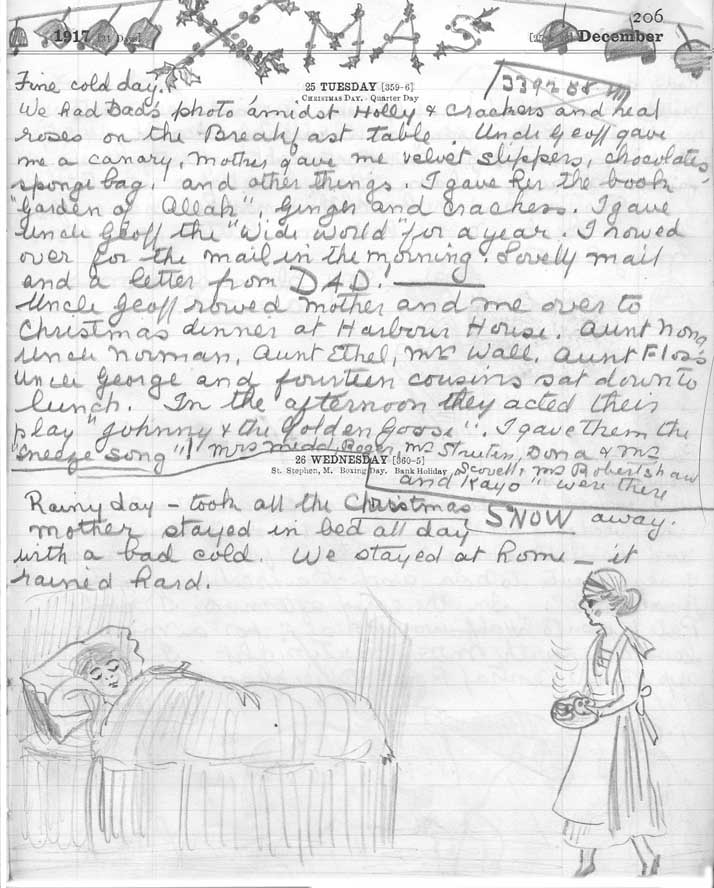 206
XMAS
1917 December
25 TUESDAY [359-6]
CHRISTMAS DAY. Quarter Day
Fine cold day.
We had Dad's photo amidst Holly & crackers and real
roses on the Breakfast table. Uncle Geoff gave
me a canary, Mother gave me velvet slippers, chocolates
sponge bag, and other things. I gave her the book
"Garden of Allah", Ginger and crackers. I gave
Uncle Geoff the "Wide World" for a year. I rowed
over for the mail in the morning. Lovely mail
and a letter from DAD!
Uncle Geoff rowed Mother and me over to
Christmas dinner at Harbour House. Aunt Nona
Uncle Norman, Aunt Ethel, Mr Wall, Aunt Floss
Uncle George and fourteen cousins sat down to
lunch. In the afternoon they acted their
play "Johnny & the Golden Goose". I gave them the
"Sneeze song"! Mrs Midd, Roger, Mrs Dona & Mr
Scovell, Mrs Robertshaw
and "Kayo" were there
26 WEDNESDAY [360-5]
St. Stephen, M. Boxing Day. Bank Holiday
Rainy day – took all the Christmas SNOW away.
Mother stayed in bed all day
with a bad cold. We stayed at home – it
rained hard.